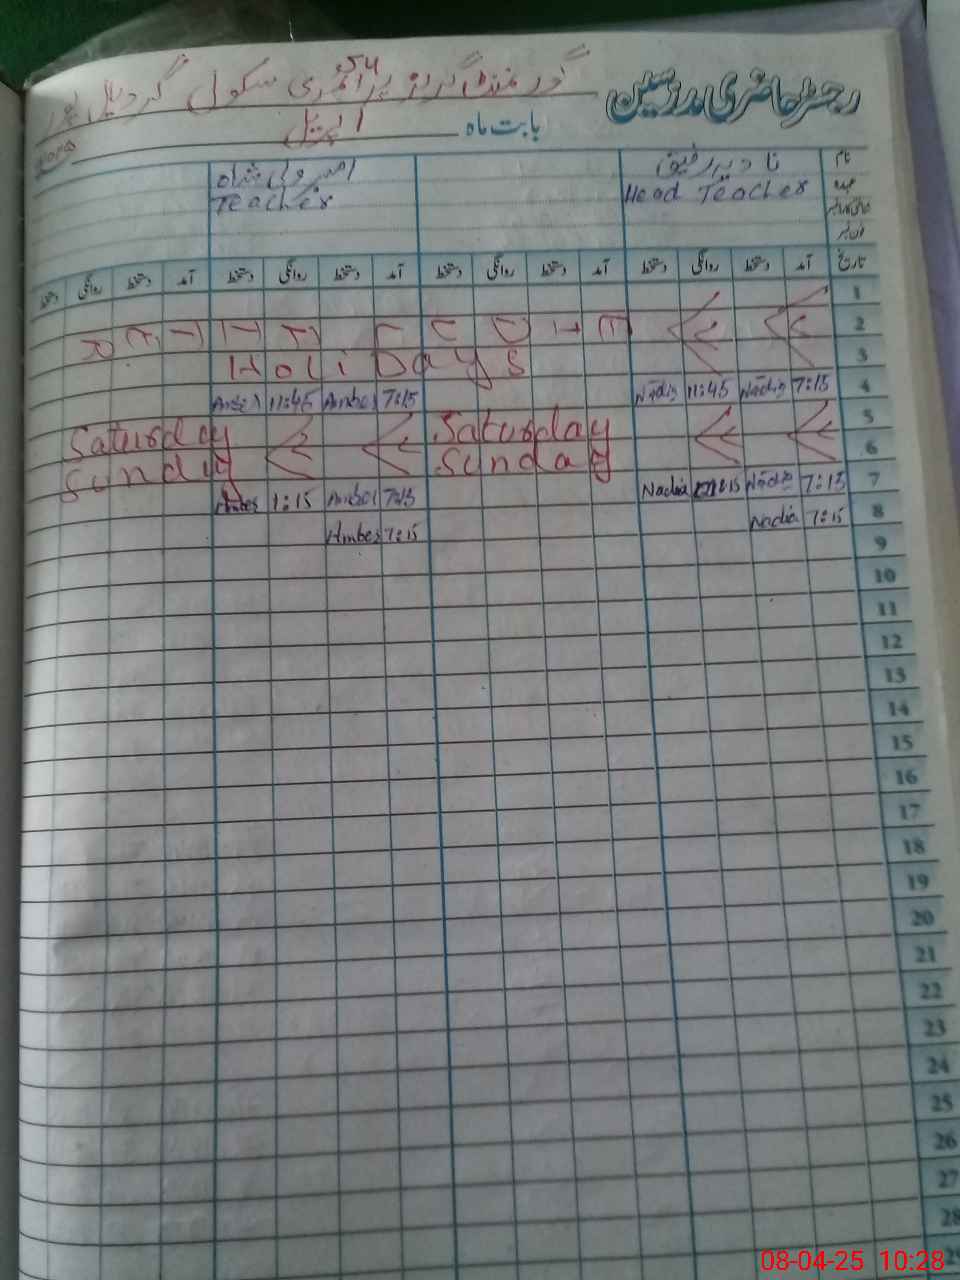 گورنمنٹ گرلز پرائمری سکول
رجسٹر حاضری مدرسین
بابت ماہ اپریل
نام نادیہ رفیق
عہدہ Head Teacher Teacher
تاریخ آمد دستخط روانگی دستخط آمد دستخط روانگی دستخط آمد دستخط روانگی دستخط آمد دستخط روانگی دستخط
1
2
3 Holi Days
4 7:15 Nadia 11:45 Nadia 7:15 Amber 11:45 Amber
5 Saturday Saturday
6 Sunday Sunday
7 7:15 Nadia Nadia 7:15 Amber 1:15 Amber
8 7:15 Nadia 7:15 Amber
9
10
11
12
13
14
15
16
17
18
19
20
21
22
23
24
25
26
27
28
29
08-04-25 10:28